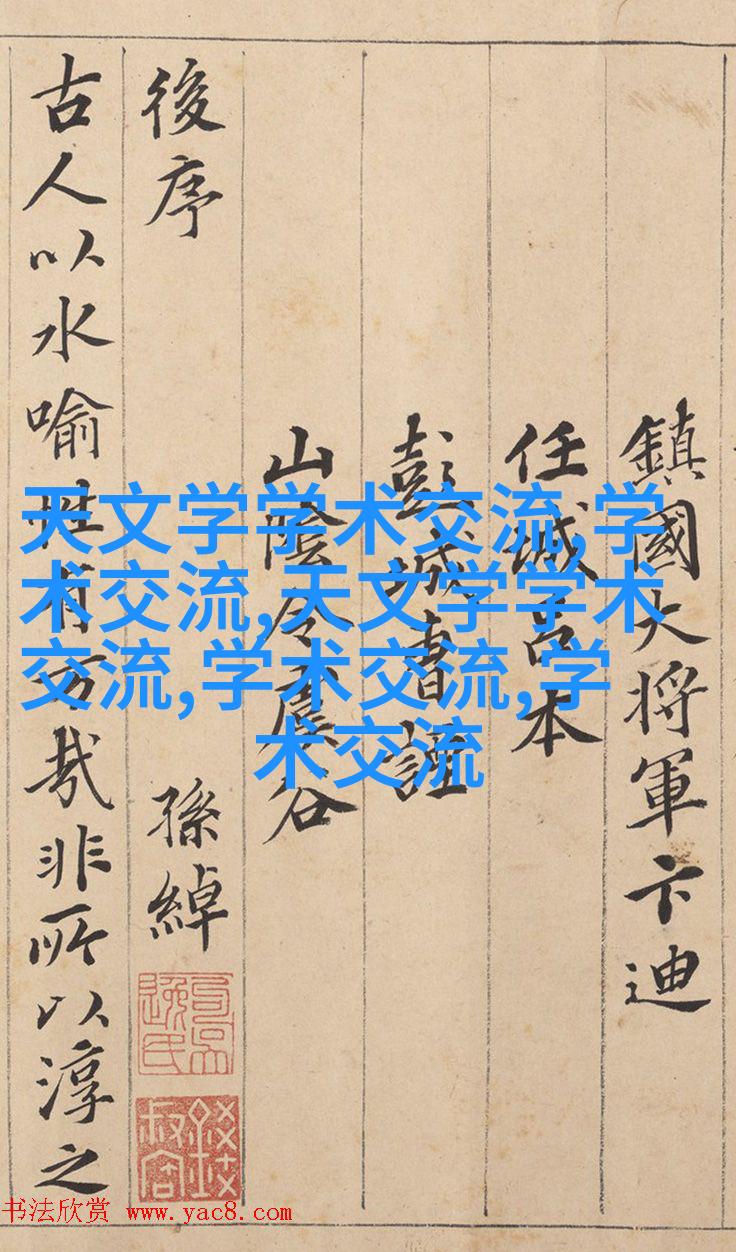 鎮國大将軍卞迪
任城呂本
彭城曹諲
山陰令虞谷
後序
孫綽
古人以水喻性有㫖哉非所以淳之
天文学学术交流,学
术交流,天文学学术
交流,学术交流,学
术交流
书法欣赏 www.yac8.com